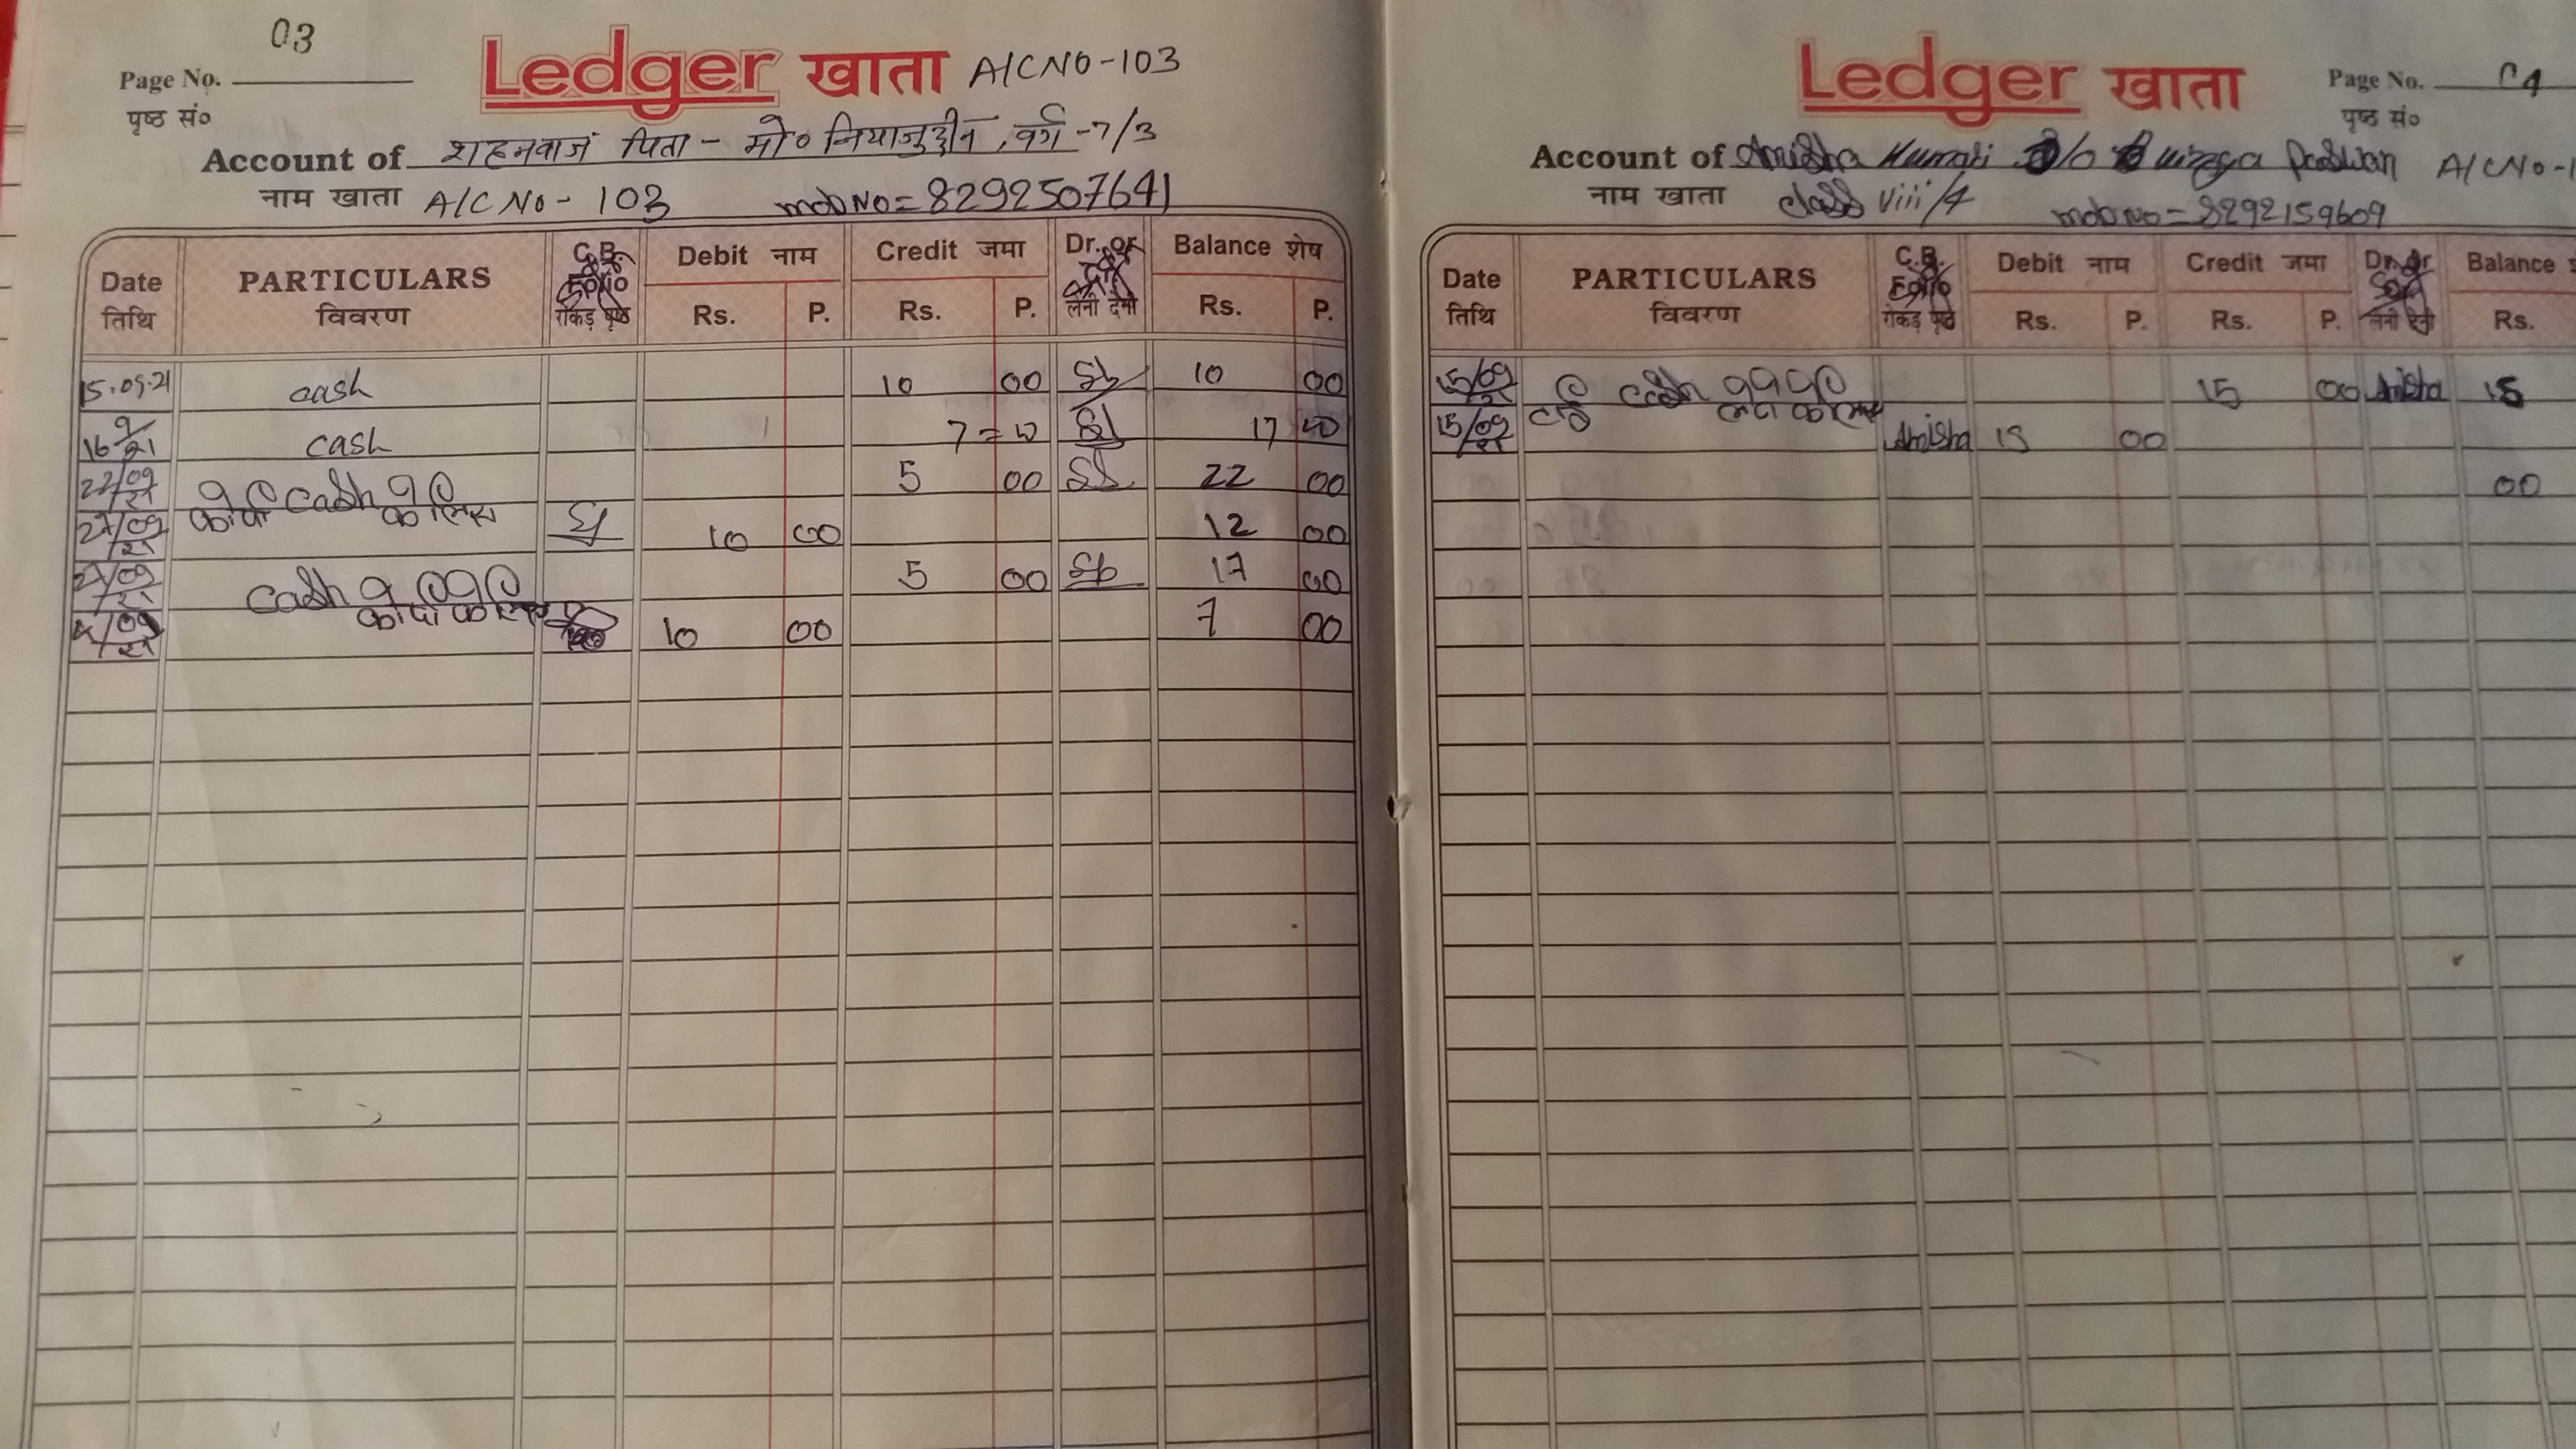 03
Page No.
पृष्ठ सं०
Ledger खाता A/C NO-103
Account of शहनवाज पिता - मो० नियाजुद्दीन, वर्ग -7/3
नाम खाता A/C NO - 103 mob NO = 8292507641
Date PARTICULARS C.B. Folio Debit नाम Credit जमा Dr. or Balance शेष
तिथि विवरण रोकड़ पृष्ठ Rs. P. Rs. P. लेनी देनी Rs. P.
15.09.21 cash 10 00 10 00
16 9/21 cash 7 = 17
22/09/21 cash 5 00 22 00
27/09/21 कॉपी के लिए 10 00 12 00
27/09/21 cash 5 00 17 00
09/21 कॉपी के लिए 10 00 7 00
Ledger खाता
Page No. 04
पृष्ठ सं०
Account of Anisha Kumari Paswan A/C NO-1
नाम खाता class viii/4 mob no = 8292159609
Date PARTICULARS C.B. Folio Debit नाम Credit जमा Dr. or Balance
तिथि विवरण रोकड़ पृष्ठ Rs. P. Rs. P. लेनी देनी Rs.
15/09/21 cash 15 00 Anisha 15
15/09/21 Anisha 15 00
00